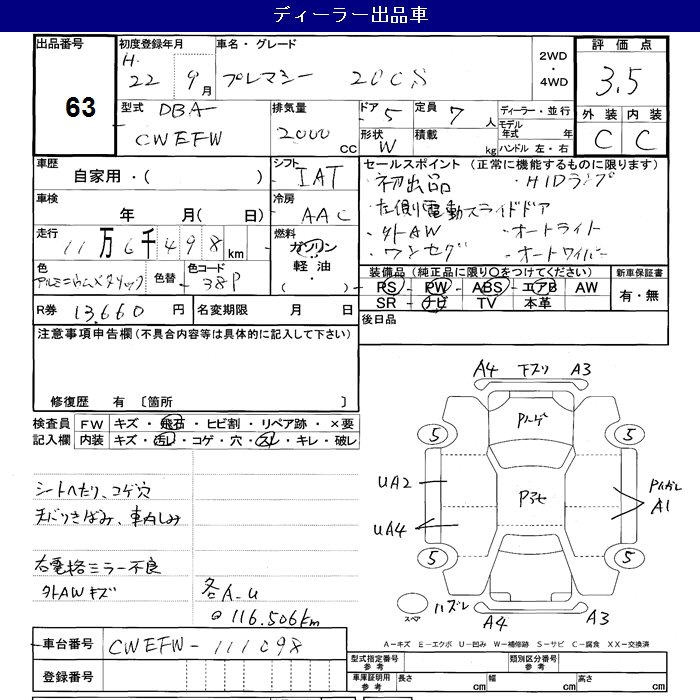 ディーラー出品車
出品番号 初度登録年月 車名・グレード 2WD ・ 4WD 評価点
63
H. 22 9月 プレマシー 20CS 3.5
型式 DBA- CWEFW 排気量 2000 cc ドア 5 定員 7 人 ディーラー・並行
形状 W 積載 kg モデル年式 年
ハンドル 左・右
外装 内装
C C
車歴 自家用・( ) シフト IAT
セールスポイント (正常に機能するものに限ります)
・初出品 ・HIDランプ
・左側電動スライドドア
・外AW ・オートライト
・ワンセグ ・オートワイパー
車検 年 月( 日) 冷房 AAC
走行 11万6千498km 燃料 ガソリン・軽油・( )
色 アルミニウムメタリック 色替 色コード 38P
装備品 (純正品に限り○をつけてください) 新車保証書
PS PW ABS エアB AW 有・無
SR ナビ TV 本革
R券 13,660 円 名変期限 月 日
後日品
注意事項申告欄 (不具合内容等は具体的に記入して下さい)
修復歴 有 〔箇所 〕
検査員記入欄 FW キズ・飛石・ヒビ割・リペア跡・×要
内装 キズ・汚レ・コゲ・穴・スレ・キレ・破レ
シートへたり、コゲ穴
天バリきばみ、車内しみ
右電格ミラー不良
外AWキズ
各A-U
@116.506km
A4 下スリ A3
5 5
UA2
UA4
A1
5 5
スペア ハズレ
A4 A3
A－キズ E－エクボ U－凹み W－補修跡 S－サビ C－腐食 XX－交換済
車台番号 CWEFW-111098
登録番号
型式指定番号 参考 類別区分番号 参考
車庫証明用 参考 長さ cm 幅 cm 高さ cm